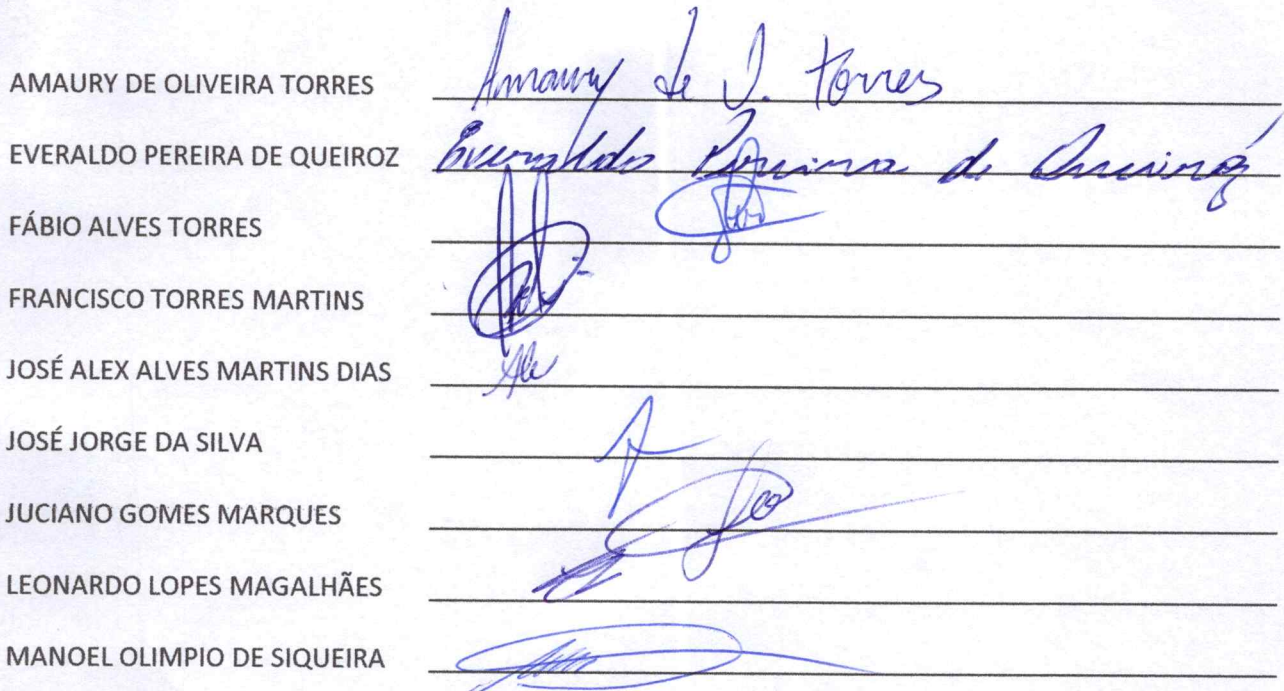 AMAURY DE OLIVEIRA TORRES Amaury de O. Torres
EVERALDO PEREIRA DE QUEIROZ Everaldo Pereira de Queiróz
FÁBIO ALVES TORRES
FRANCISCO TORRES MARTINS
JOSÉ ALEX ALVES MARTINS DIAS Alex
JOSÉ JORGE DA SILVA
JUCIANO GOMES MARQUES
LEONARDO LOPES MAGALHÃES
MANOEL OLIMPIO DE SIQUEIRA